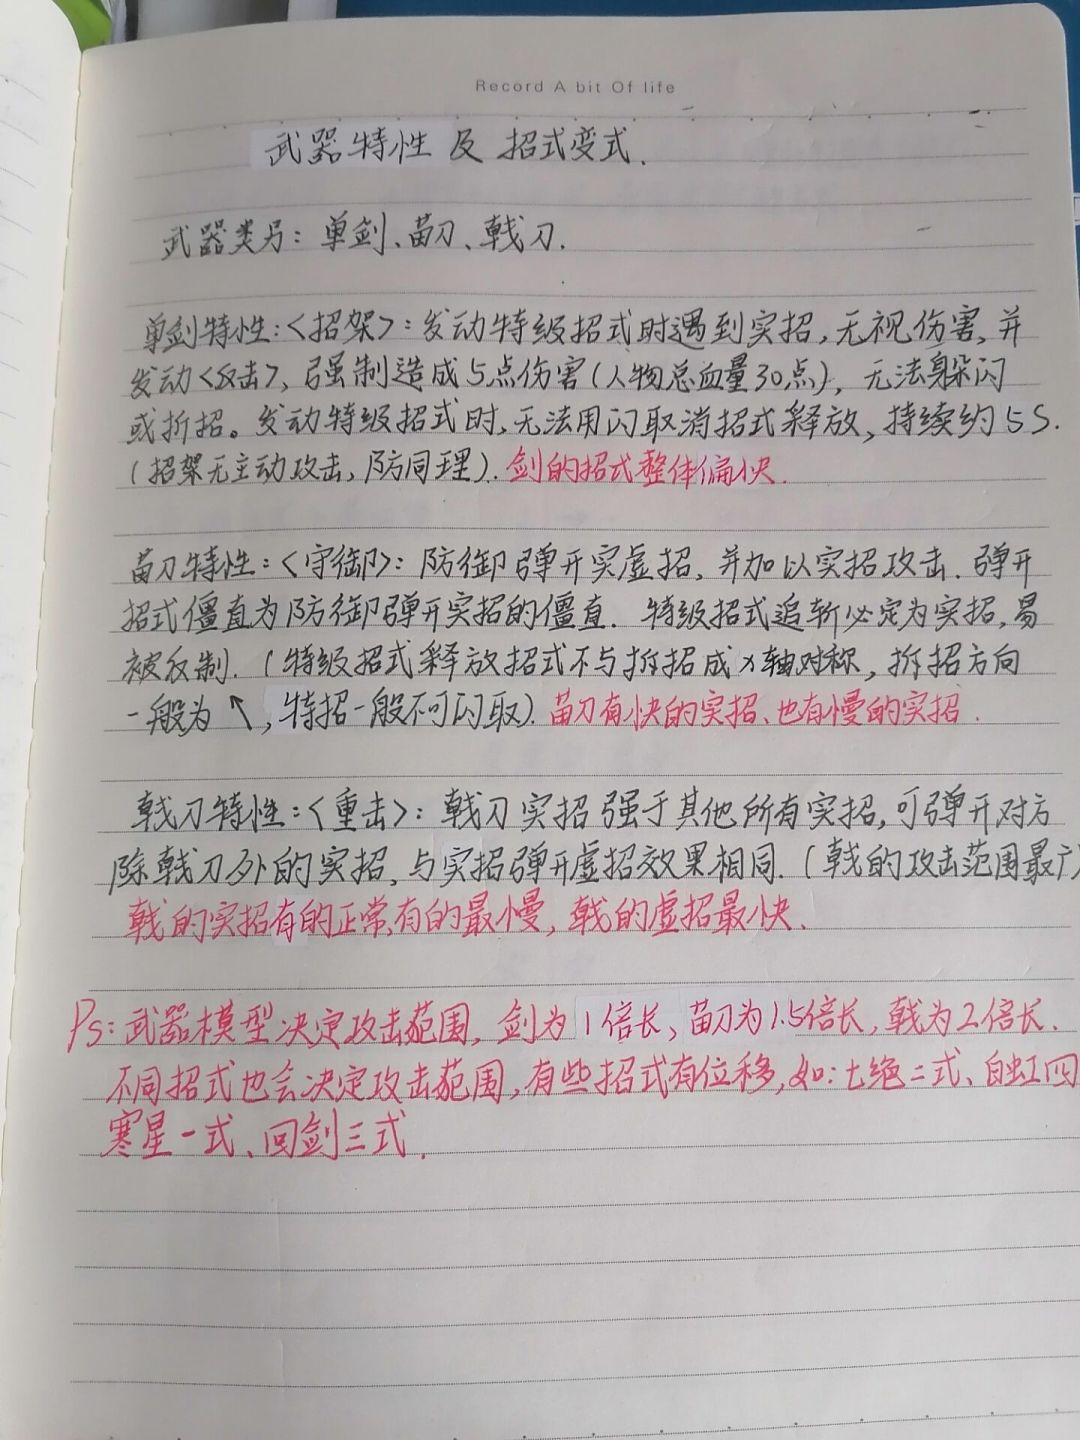 Record A bit Of life
武器特性及招式变式.
武器类另：单剑、苗刀、戟刀.
单剑特性：<招架>：发动特级招式时遇到实招，无视伤害，并
发动<反击>，强制造成5点伤害(人物总血量30点)，无法躲闪
或折招。发动特级招式时，无法用闪取消招式释放，持续约5S.
(招架无主动攻击，防同理). 剑的招式整体偏快.
苗刀特性：<守御>：防御弹开实虚招，并加以实招攻击. 弹开
招式僵直为防御弹开实招的僵直. 特级招式追斩必定为实招，易
被反制.(特级招式释放招式不与拆招成x轴对称，拆招方向
一般为↖，特招一般不可闪取) 苗刀有快的实招、也有慢的实招.
戟刀特性：<重击>：戟刀实招强于其他所有实招，可弹开对方
除戟刀外的实招，与实招弹开虚招效果相同.(戟的攻击范围最广)
戟的实招有的正常，有的最慢，戟的虚招最快.
Ps：武器模型决定攻击范围，剑为1倍长，苗刀为1.5倍长，戟为2倍长.
不同招式也会决定攻击范围，有些招式有位移，如：七绝二式、白虹四
寒星一式、回剑三式.